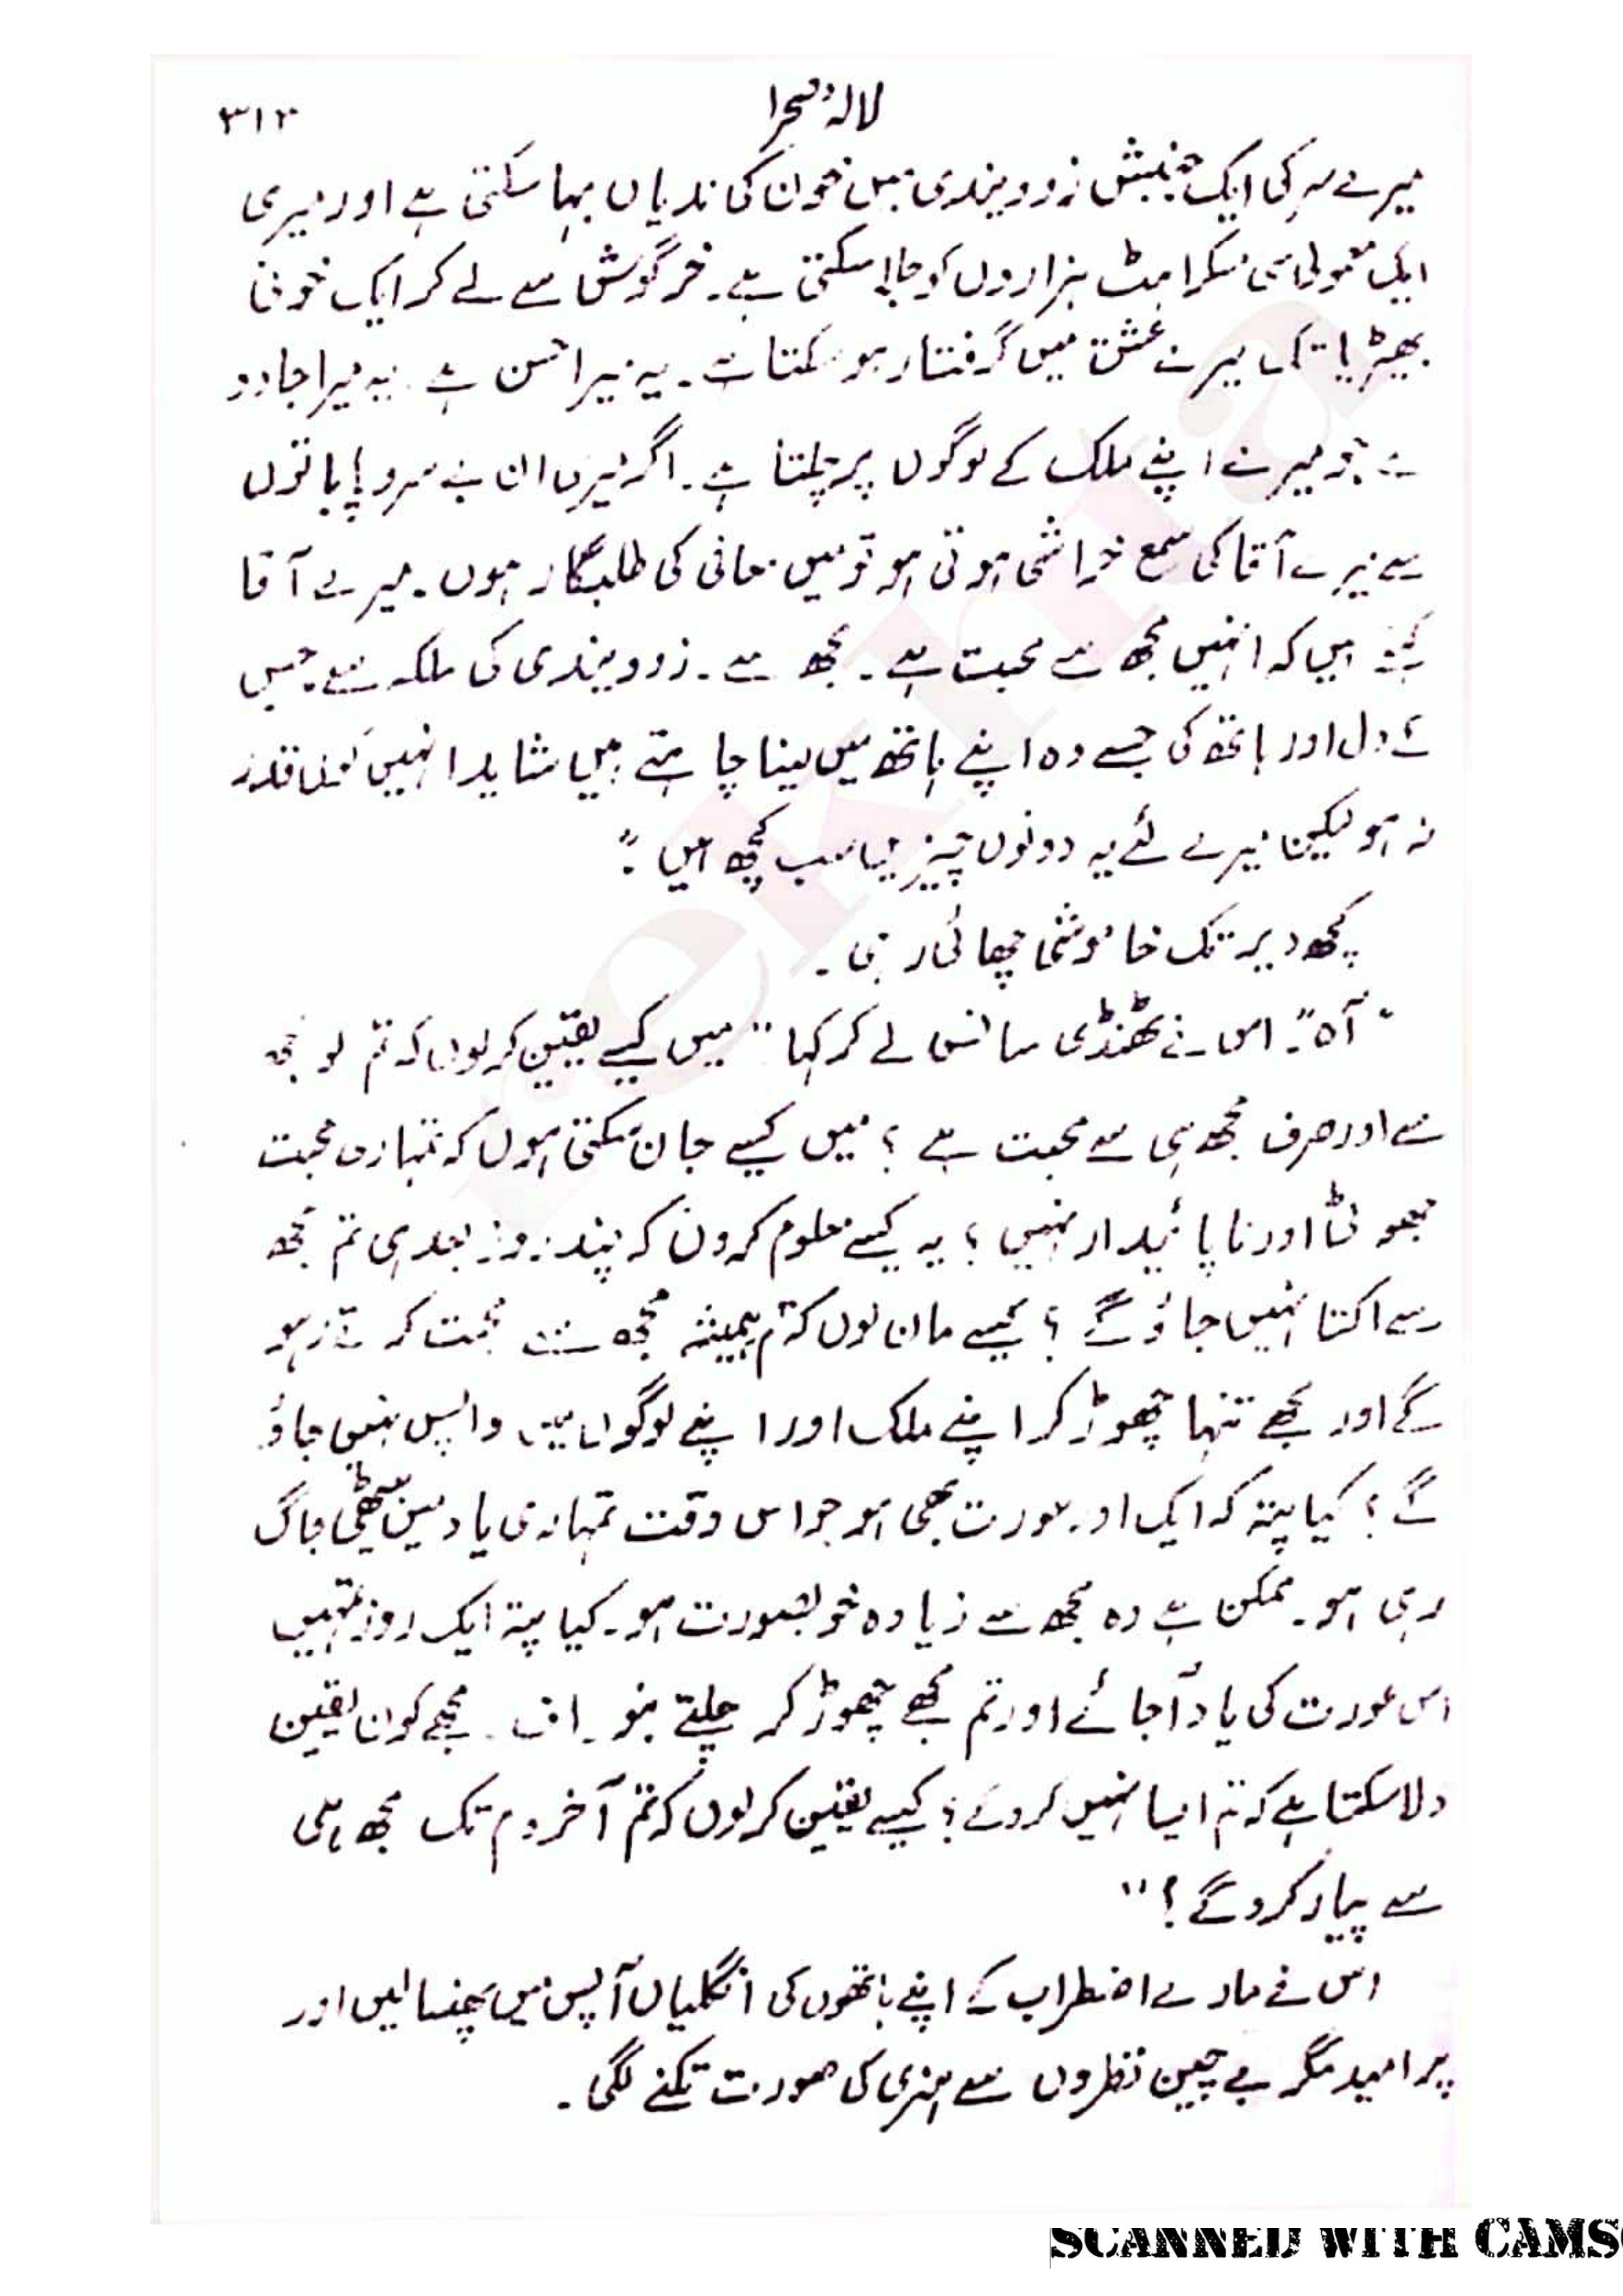 لالۂ صحرا
۳۱۲
میرے سر کی ایک جنبش زوویندی میں خون کی ندیاں بہا سکتی ہے اور میری
ایک معمولی سی مسکراہٹ ہزاروں کو جلا سکتی ہے۔ خرگوش سے لے کر ایک خونی
بھیڑیا تک میرے عشق میں گرفتار ہو سکتا ہے۔ یہ میرا حسن ہے یہ میرا جادو
ہے جو میرے اپنے ملک کے لوگوں پر چلتا ہے۔ اگر میری ان بے سروپا باتوں
سے میرے آقا کی سمع خراشی ہوتی ہو تو میں معافی کی طلبگار ہوں۔ میرے آقا
کہتے ہیں کہ انہیں مجھ سے محبت ہے۔ مجھ سے۔ زوویندی کی ملکہ سے جس
کے دل اور ہاتھ کی جسے وہ اپنے ہاتھ میں لینا چاہتے ہیں شاید انہیں کوئی قدر
نہ ہو لیکن میرے لئے یہ دونوں چیزیں سب کچھ ہیں"۔
کچھ دیر تک خاموشی چھائی رہی۔
"آہ"۔ اس نے ٹھنڈی سانس لے کر کہا "میں کیسے یقین کر لوں کہ تم کو مجھ
سے اور صرف مجھ ہی سے محبت ہے؟ میں کیسے جان سکتی ہوں کہ تمہاری محبت
جھوٹی اور ناپائیدار نہیں؟ یہ کیسے معلوم کروں کہ چند روز بعد ہی تم مجھ
سے اکتا نہیں جاؤ گے؟ کیسے مان لوں کہ تم ہمیشہ مجھ سے محبت کرتے رہو
گے اور مجھے تنہا چھوڑ کر اپنے ملک اور اپنے لوگوں میں واپس نہیں جاؤ
گے؟ کیا پتہ کہ ایک اور عورت بھی ہو جو اس وقت تمہاری یاد میں بیٹھی جاگ
رہی ہو۔ ممکن ہے وہ مجھ سے زیادہ خوبصورت ہو۔ کیا پتہ ایک روز تمہیں
اس عورت کی یاد آ جائے اور تم مجھے چھوڑ کر چلتے بنو۔ اف۔ مجھے کون یقین
دلا سکتا ہے کہ تم ایسا نہیں کرو گے؟ کیسے یقین کر لوں کہ تم آخر دم تک مجھ ہی
سے پیار کرو گے؟"
اس نے مارے اضطراب کے اپنے ہاتھوں کی انگلیاں آپس میں پھنسا لیں اور
پر امید مگر بے چین نظروں سے ہنری کی صورت تکنے لگی۔
rekhta
SCANNED WITH CAMS